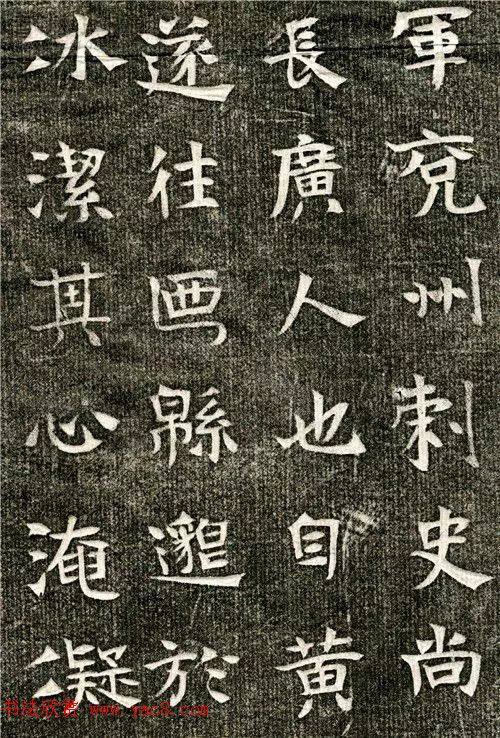 軍兗州刺史尚
長廣人也自黃
遂往緜邈於
冰潔其心淹凝
书法欣赏 www.yac8.com